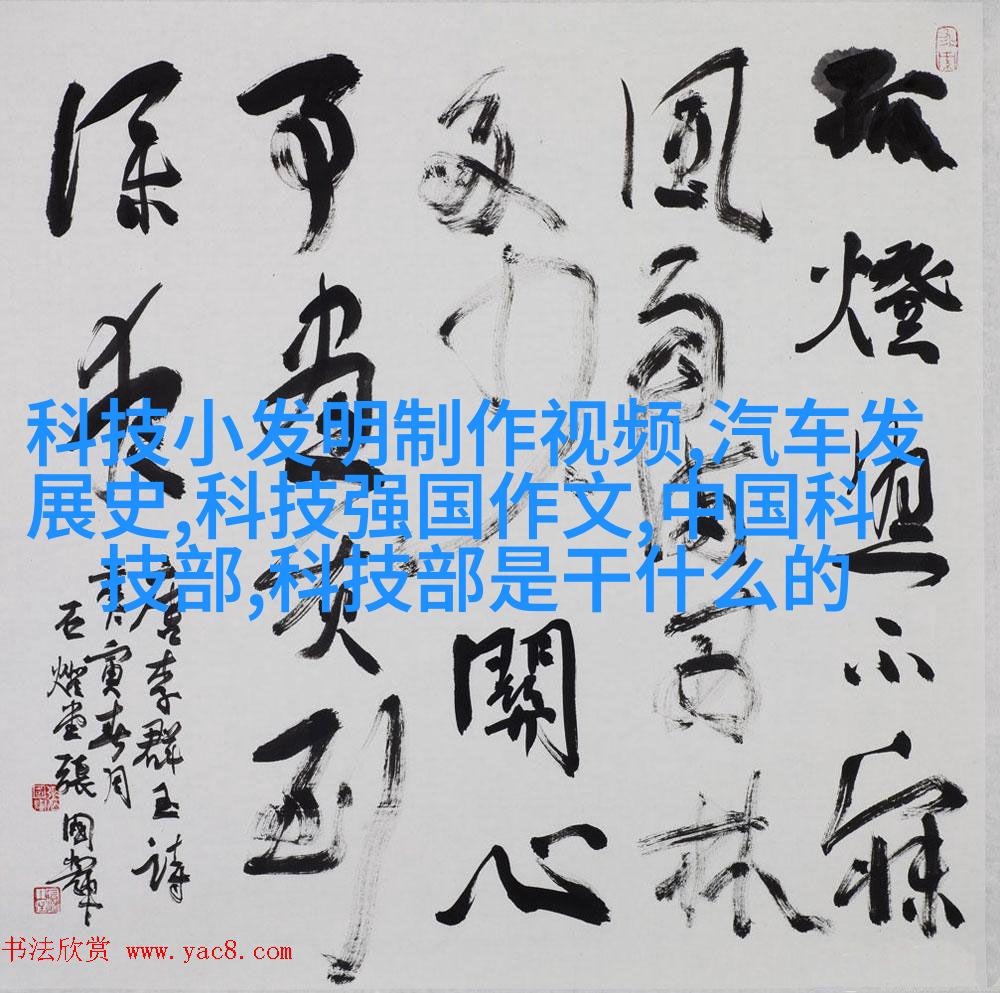 孤燈照不寐
風雨滿西林
多少關心
事書灰到
深夜
唐李群玉詩
寅春月
石堂張國輝
科技小发明制作视频,汽车发
展史,科技强国作文,中国科
技部,科技部是干什么的
书法欣赏 www.yac8.com